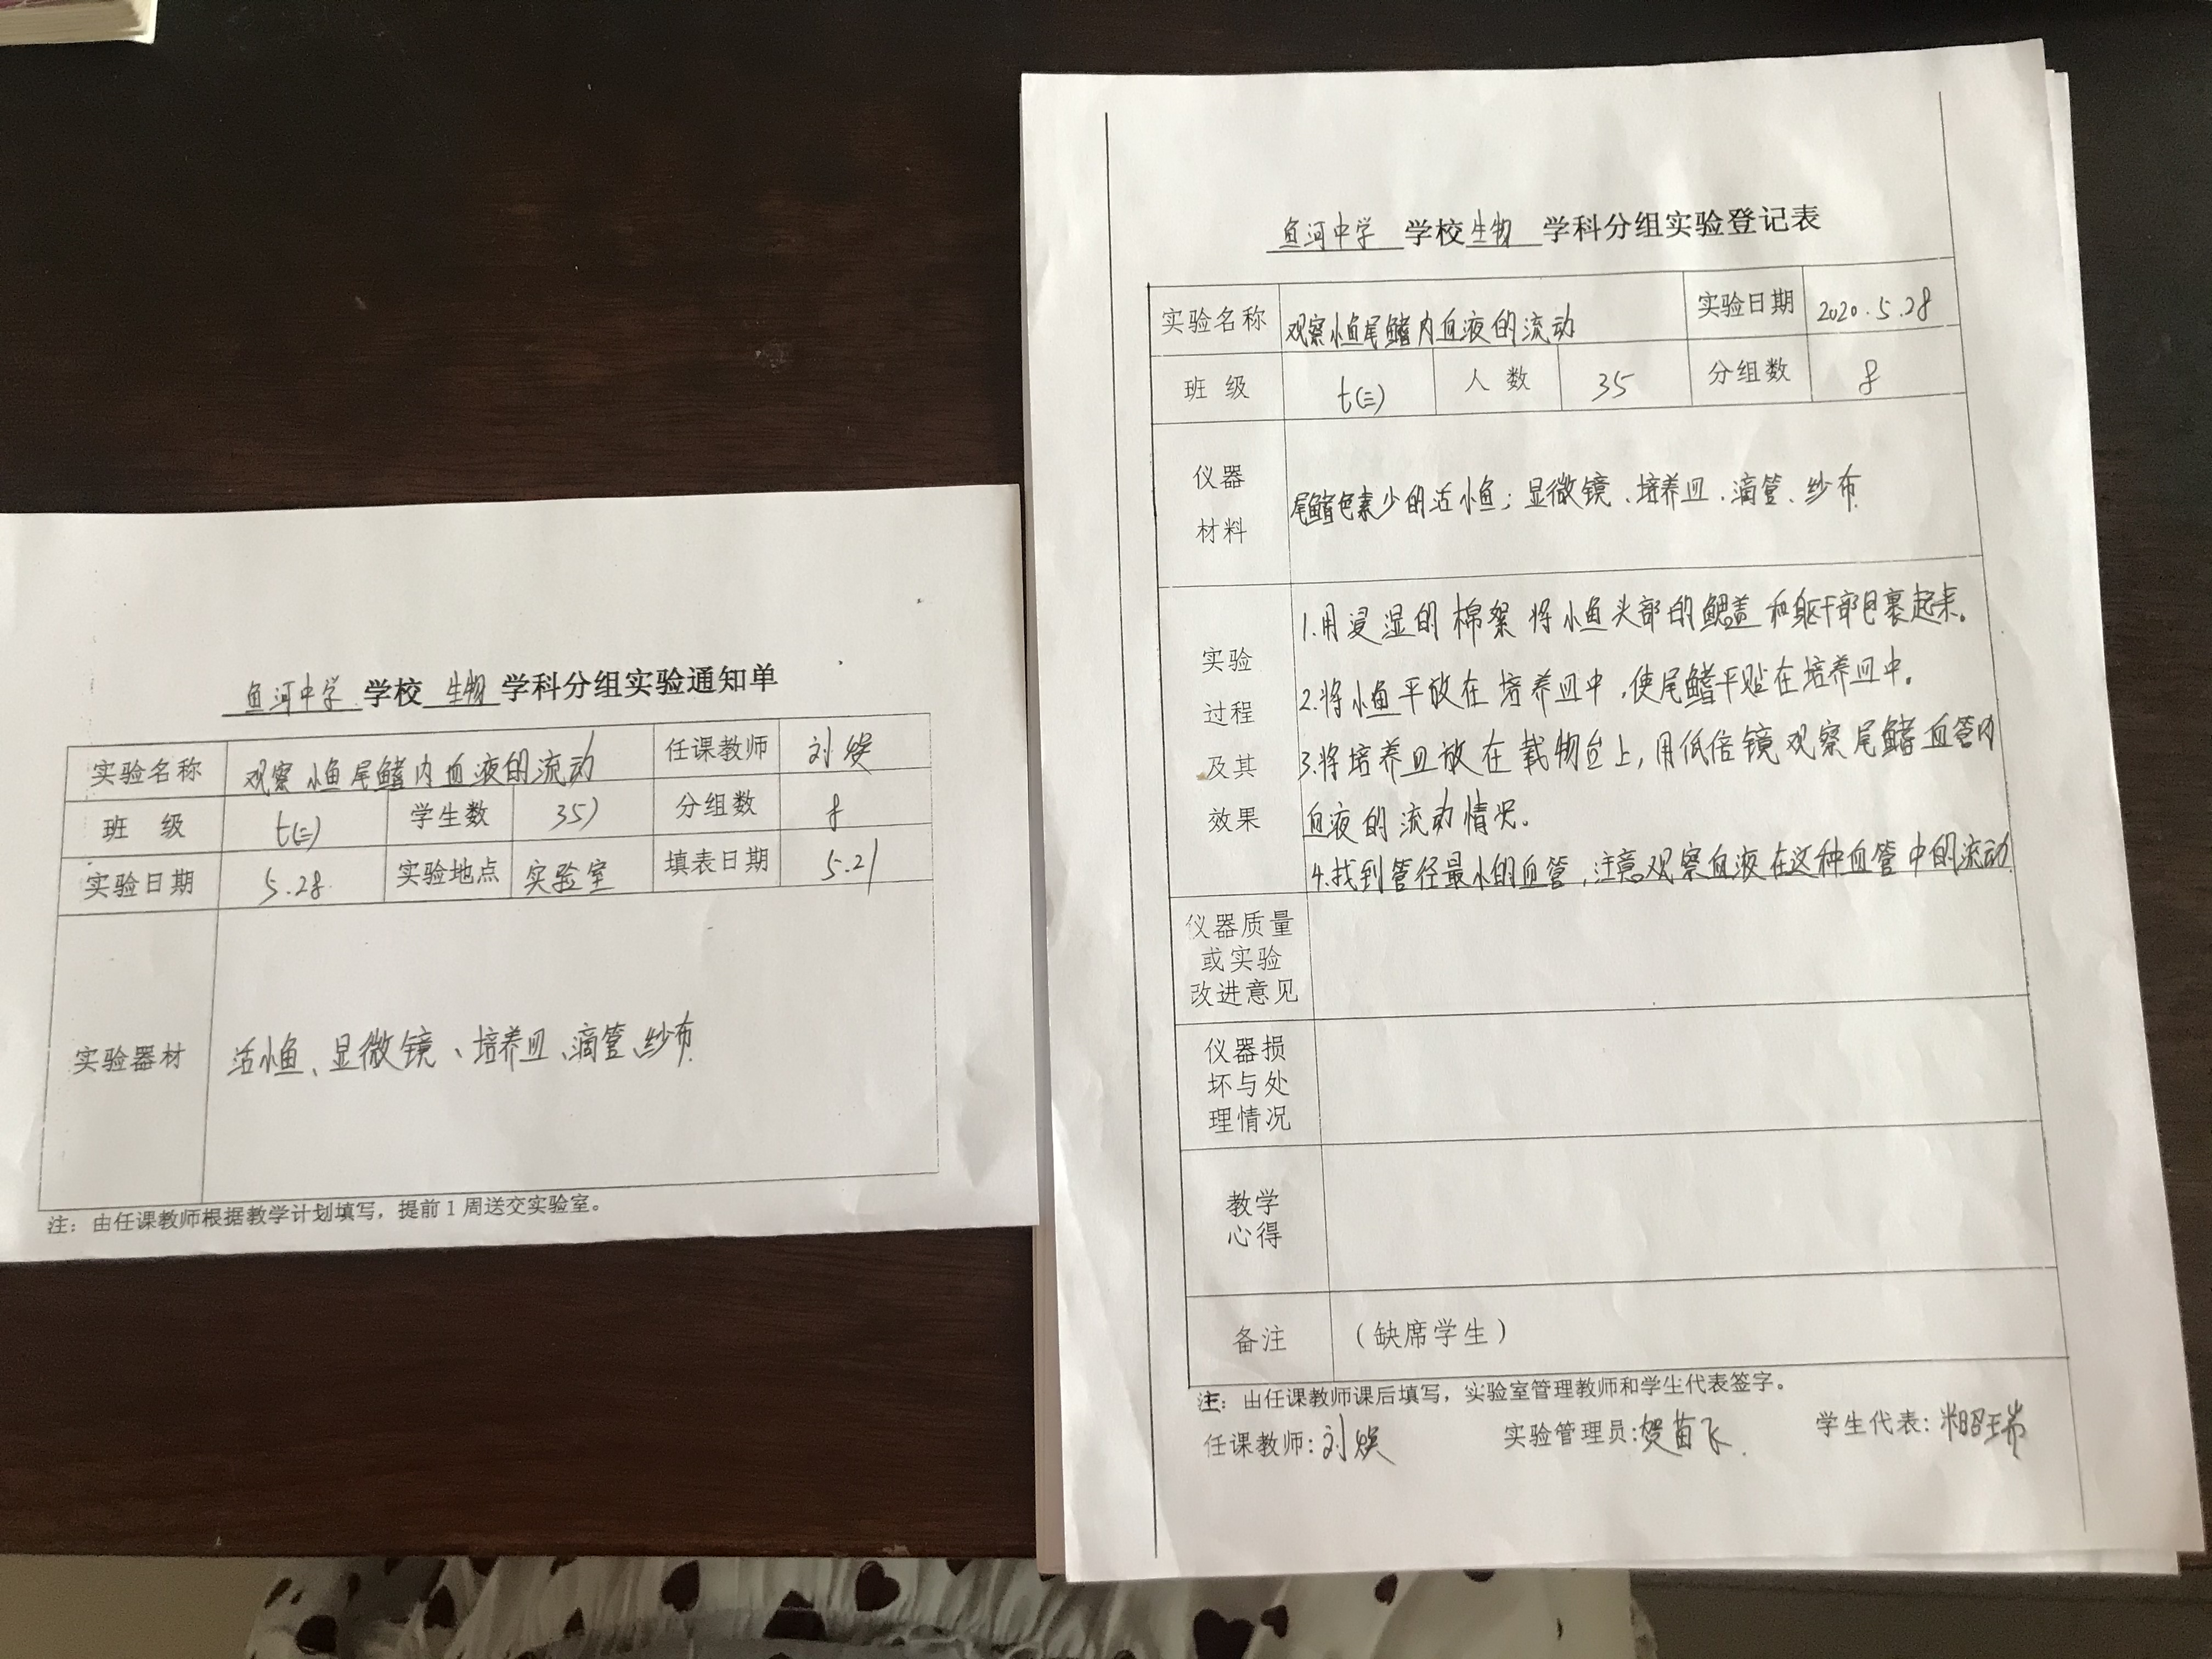 鱼河中学 学校 生物 学科分组实验通知单
实验名称 观察小鱼尾鳍内血液的流动 任课教师 刘焕
班 级 七(三) 学生数 35 分组数 8
实验日期 5.28 实验地点 实验室 填表日期 5.21
实验器材 活小鱼、显微镜、培养皿、滴管、纱布
注：由任课教师根据教学计划填写，提前1周送交实验室。
鱼河中学 学校 生物 学科分组实验登记表
实验名称 观察小鱼尾鳍内血液的流动 实验日期 2020.5.28
班 级 七(三) 人 数 35 分组数 8
仪器
材料
尾鳍色素少的活小鱼；显微镜、培养皿、滴管、纱布
实验
过程
及其
效果
1.用浸湿的棉絮将小鱼头部的鳃盖和躯干部包裹起来。
2.将小鱼平放在培养皿中，使尾鳍平贴在培养皿中。
3.将培养皿放在载物台上，用低倍镜观察尾鳍血管内
血液的流动情况。
4.找到管径最小的血管，注意观察血液在这种血管中的流动
仪器质量
或实验
改进意见
仪器损
坏与处
理情况
教学
心得
备注 （缺席学生）
注：由任课教师课后填写，实验室管理教师和学生代表签字。
任课教师：刘焕 实验管理员：贺苗飞 学生代表：